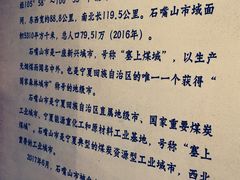 经105°58′
东西宽约88.8公里，南北长119.5公里。石嘴山市域面
积5310平方千米，总人口79.51万（2016年）。
石嘴山市是一座新兴城市，号称“塞上煤城”，以生产
无烟煤而闻名中外，也是宁夏回族自治区的唯一一个获得“
国家森林城市”称号的地级市。
石嘴山市是宁夏回族自治区直属地级市，国家重要煤炭
工业城市，宁夏能源重化工和原材料工业基地，号称“塞上
煤城”。石嘴山市是宁夏典型的煤炭资源型工业城市，西北
2017年6月，石嘴山市